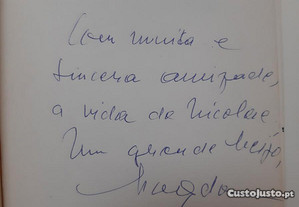 Com muita e
sincera amizade,
a vida de Nicolae
Um grande beijo,
Magda
CustoJusto.pt